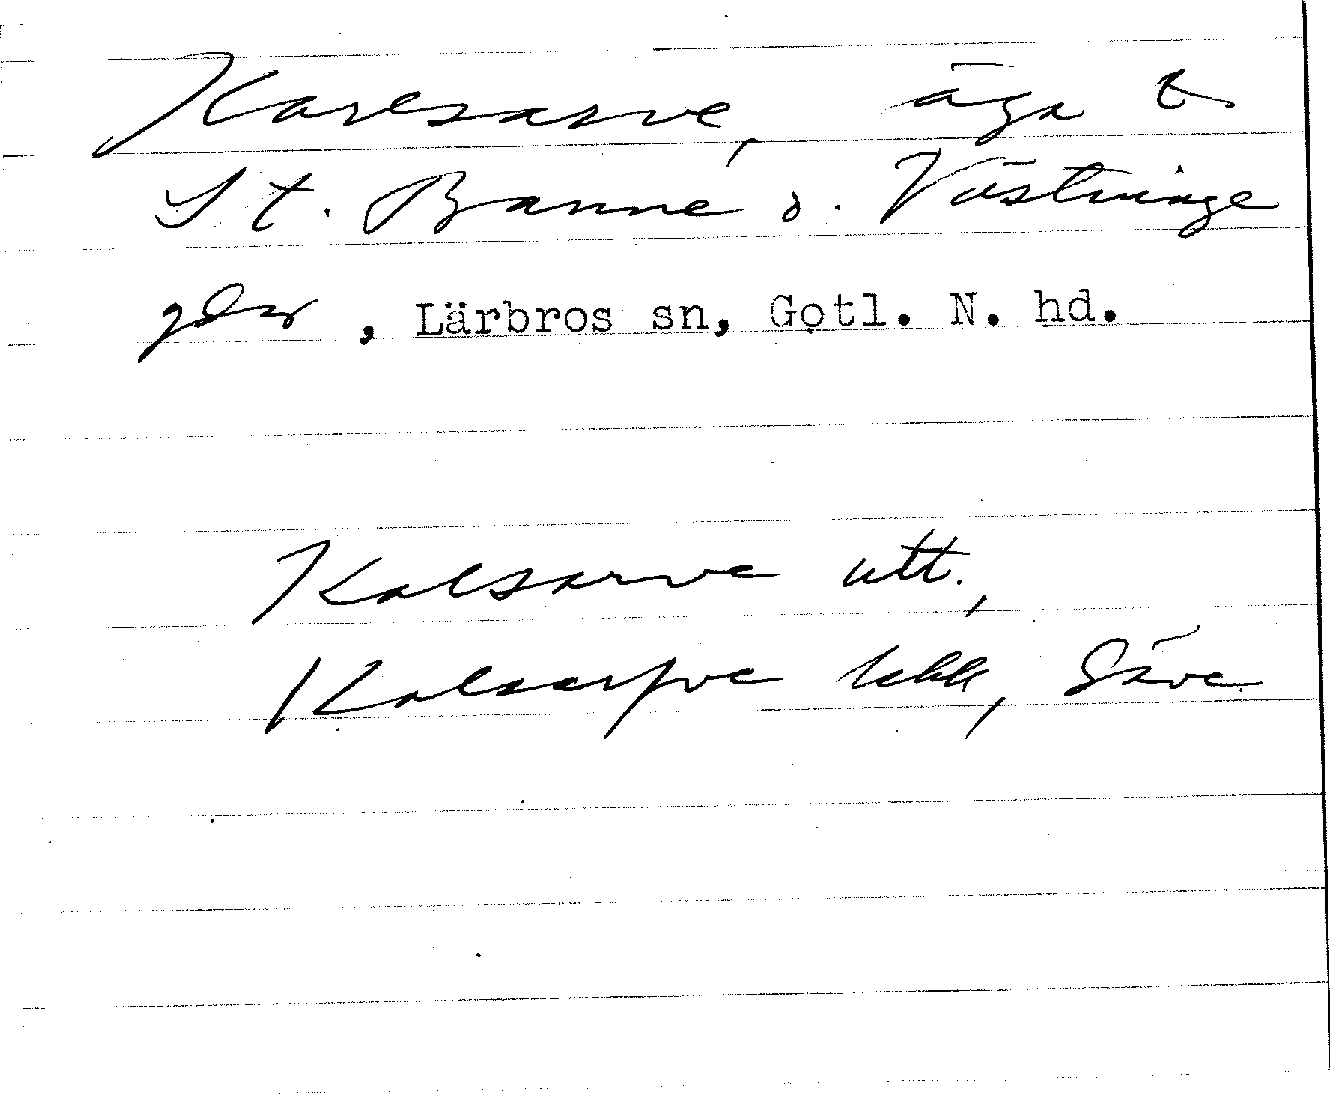 Karlsarve, äga t.
St. Banne o. Västringe
gdr, Lärbros sn, Gotl. N. hd.
Kalsarve utt.,
Kalsarfve Säve.